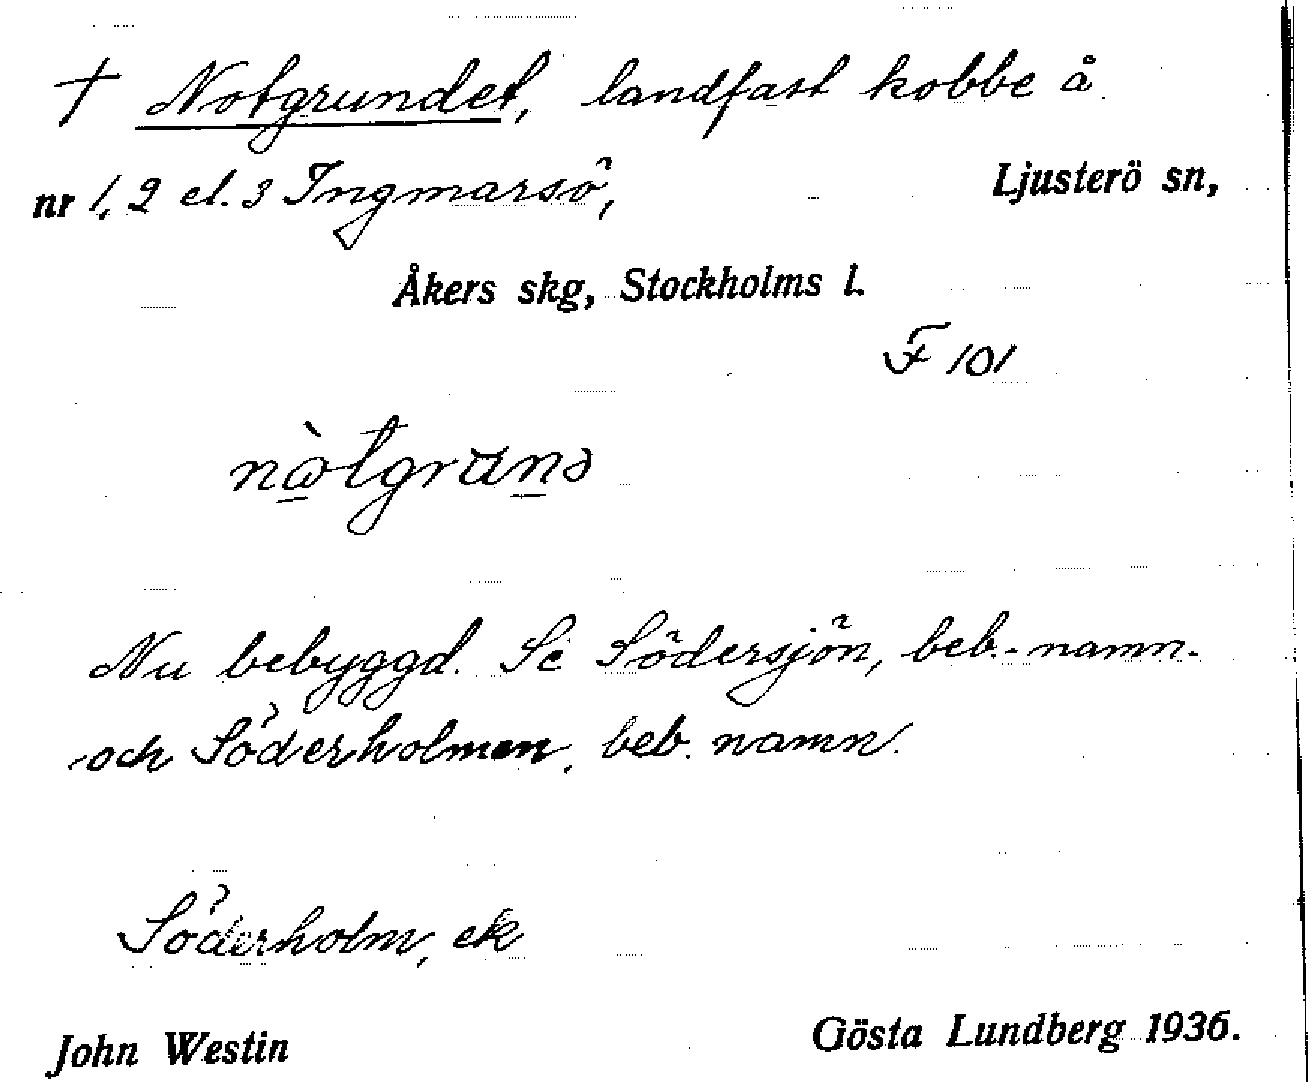 † Notgrundet, landfast kobbe å
nr 1, 2 el. 3 Ingmarsö, Ljusterö sn,
Åkers skg, Stockholms l.
F 101
Nu bebyggd. Se Södersjön, beb.-namn.
och Söderholmen, beb. namn.
Söderholm, ek
John Westin Gösta Lundberg 1936.